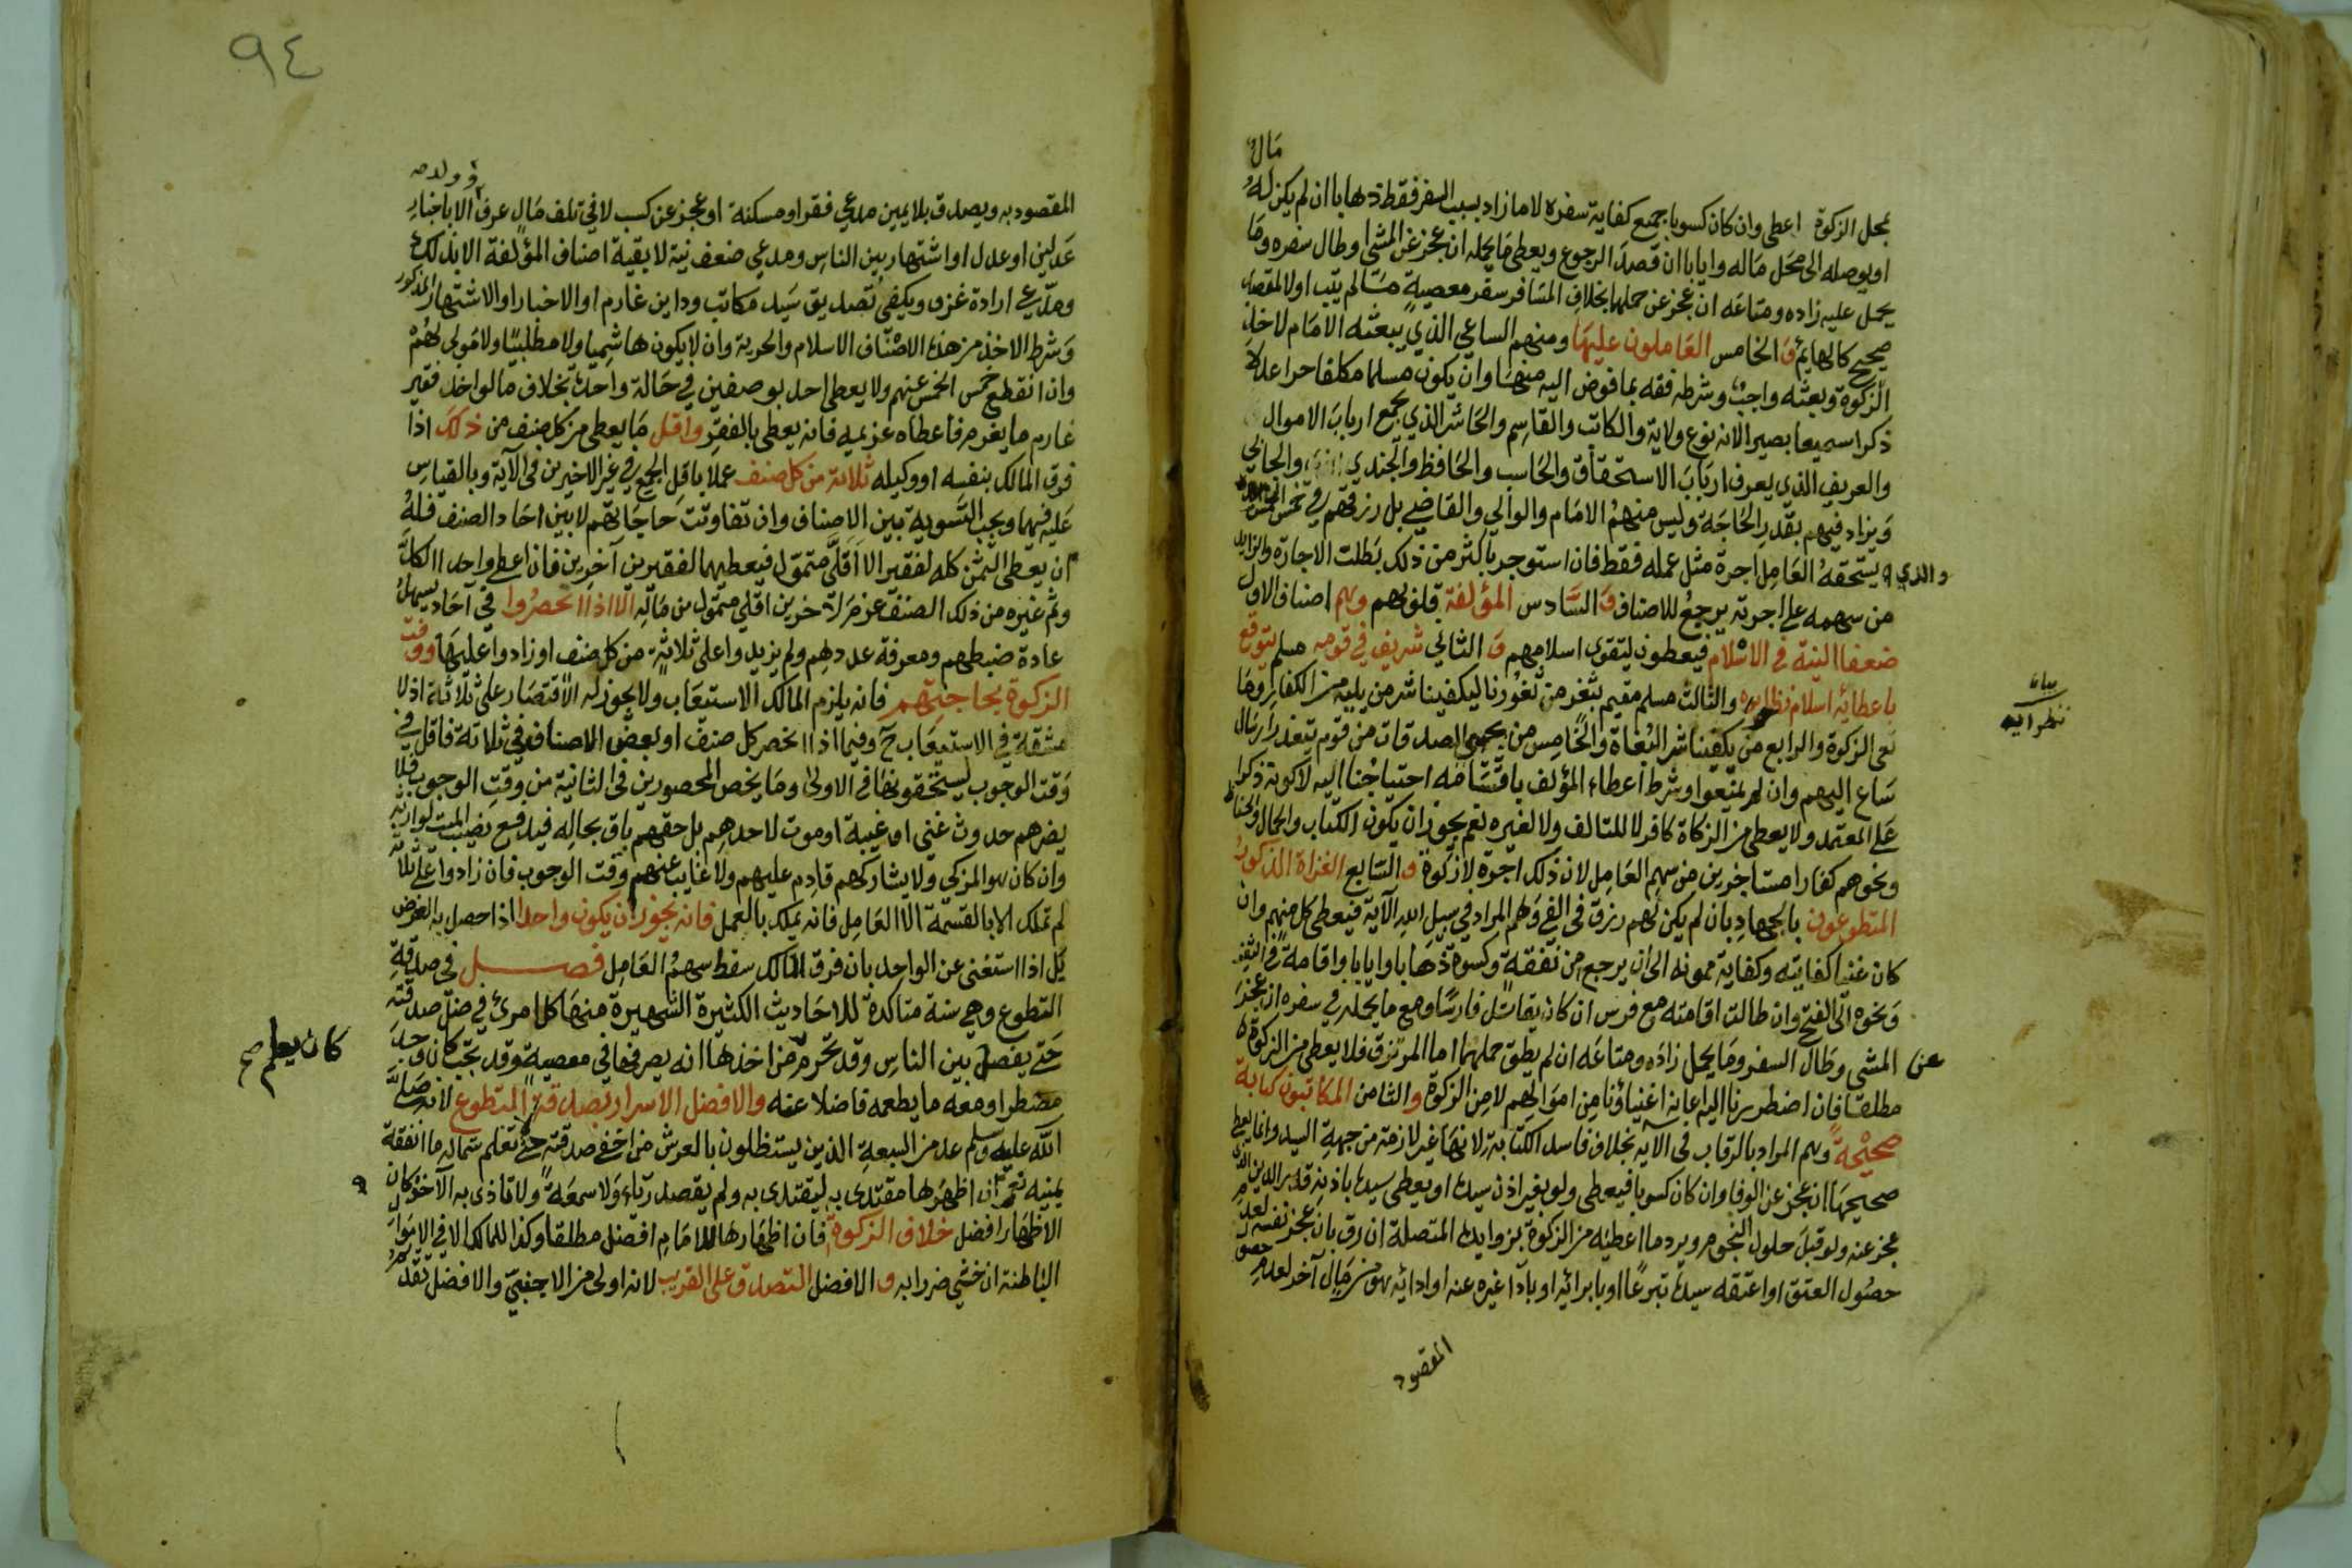 مال
بمحل الزكوة اعطى وان كان كسوبا جميع كفاية سفره لا ما زاد بسبب السفر فقط ذهابا ان لم يكن له
او يوصله الى محل ماله وايابا ان قصد الرجوع ويعطى ما يحمله ان عجز عن المشي او طال سفره وما
يحمل عليه زاده ومتاعه ان عجز عن حملهما بخلاف المسافر سفر معصية ما لم يتب او لا لمقصد
صحيح كالهايم و الخامس العاملون عليها ومنهم الساعي الذي يبعثه الامام لاخذ
الزكوة وبعثه واجب وشرطه فقه بما فوض اليه منها وان يكون مسلما مكلفا حرا عدلا
ذكرا سميعا بصيرا لانه نوع ولاية والكاتب والقاسم والحاشر الذي يجمع ارباب الاموال
والعريف الذي يعرف ارباب الاستحقاق والحاسب والحافظ والجندي والجابي
ويزاد فيهم بقدر الحاجة وليس منهم الامام والوالي والقاضي بل رزقهم في خمس الخمس
والذي يستحقه العامل اجرة مثل عمله فقط فان استوجر باكثر من ذلك بطلت الاجارة والزايد
من سهمه على اجرته يرجع للاصناف و السادس المؤلفة قلوبهم وهم اصناف الاول
ضعفا النية في الاسلام فيعطون ليتقوى اسلامهم و الثاني شريف في قومه مسلم يتوقع
باعطائه اسلام نظرايه والثالث مسلم مقيم بثغر من ثغورنا ليكفينا شر من يليه من الكفار وما
نعي الزكوة والرابع من يكفينا شر البغاة والخامس من يجبي الصدقات من قوم يتعذر ارسال
ساع اليهم وان لم يمنعوا وشرط اعطاء المؤلف باقسامه احتياجنا اليه لا كونه ذكرا
على المعتمد ولا يعطى من الزكاة كافر لا للتالف ولا لغيره نعم يجوز ان يكون الكتاب والحمال والحفاظ
ونحوهم كفارا مستاجرين من سهم العامل لان ذلك اجرة لا زكوة و السابع الغزاة الذكور
المتطوعون بالجهاد بان لم يكن لهم رزق في الفي وهم المراد في سبيل الله الآية فيعطى كل منهم وان
كان غنيا كفايته وكفاية ممونه الى ان يرجع من نفقة وكسوة ذهابا وايابا واقامة في الثغر
ونحوه الى الفتح وان طالت اقامته مع فرس ان كان يقاتل فارسا ومع ما يحمله في سفره ان عجز
عن المشي وطال السفر وما يحمل زاده ومتاعه ان لم يطق حملهما اما المرتزق فلا يعطى من الزكوة
مطلقا فان اضطررنا اليه اعانه اغنياؤنا من اموالهم لا من الزكوة و الثامن المكاتبون كتابة
صحيحة وهم المراد بالرقاب في الآية بخلاف فاسد الكتابة لانها غير لازمة من جهة السيد وانما يعطى
صحيحها ان عجز عن الوفا وان كان كسوبا فيعطى ولو بغير اذن سيده او يعطى سيده باذنه قدر الدين الذي
عجز عنه ولو قبل حلول النجوم ويرد ما اعطيه من الزكوة بزوايده المتصلة ان رق بان عجز نفسه لعدم
حصول العتق او اعتقه سيده تبرعا او بابرائه او بادآ غيره عنه او ادائه هو من مال آخر لعدم حصول
المقصود
بيان
نظرايه
٩٤
او ولد صح
المقصود به ويصدق بلا يمين مدعي فقر او مسكنة او عجز عن كسب لا في تلف مال عرف الا باخبار
عدلين او عدل او اشتهار بين الناس ومدعي ضعف نية لا بقية اصناف المؤلفة الا بذلك
ومدعي ارادة غزو ويكفي تصديق سيد مكاتب وداين غارم او الاخبار او الاشتهار المذكور
وشرط الاخذ من هذه الاصناف الاسلام والحرية وان لا يكون هاشميا ولا مطلبيا ولا مولى لهم
وان انقطع خمس الخمس عنهم ولا يعطى احد بوصفين في حالة واحدة بخلاف ما لو اخذ فقير
غارم ما يغرم فاعطاه غريمه فانه يعطى بالفقر واقل ما يعطى من كل صنف من ذلك اذا
فرق المالك بنفسه او وكيله ثلاثة من كل صنف عملا باقل الجمع في غير الاخيرين في الآية وبالقياس
عليه فيهما ويجب التسوية بين الاصناف وان تفاوتت حاجاتهم لا بين احاد الصنف فله
ان يعطى الثمن كله لفقير الا اقل متمول فيعطيهما لفقيرين آخرين فان اعطى واحدا الكل
وثم غيره من ذلك الصنف غرم لآخرين اقل متمول من ماله الا اذا انحصروا في آحاد يسهل
عادة ضبطهم ومعرفة عددهم ولم يزيدوا على ثلاثة من كل صنف او زادوا عليها ووفت
الزكوة بحاجتهم فانه يلزم المالك الاستيعاب ولا يجوز له الاقتصار على ثلاثة اذ لا
مشقة في الاستيعاب ح وفيما اذا انحصر كل صنف او بعض الاصناف في ثلاثة فاقل في
وقت الوجوب يستحقونها في الاولى وما يخص المحصورين في الثانية من وقت الوجوب فلا
يضرهم حدوث غنى او غيبة او موت لاحدهم بل حقهم باق بحاله فيدفع نصيب الميت لوارثه
وان كان هو المزكي ولا يشاركهم قادم عليهم ولا غايب عنهم وقت الوجوب فان زادوا على ثلاثة
لم تملك الا بالقسمة الا العامل فانه يملك بالعمل فانه يجوز ان يكون واحدا اذا حصل به الغرض
بل اذا استغنى عن الواحد بان فرق المالك سقط سهم العامل فصل في صدقة
التطوع وهي سنة متاكدة للاحاديث الكثيرة الشهيرة منها كل امرئ في ظل صدقته
حتى يفصل بين الناس وقد تحرم من اخذها انه يصرفها في معصية وقد تجب كان وجد
كان يعلم صح
مضطرا ومعه ما يطعمه فاضلا عنه والافضل الاسرار بصدقة المتطوع لانه صلى
الله عليه وسلم عد من السبعة الذين يستظلون بالعرش من اخفى صدقته حتى لا تعلم شماله ما انفقته
يمينه نعم ان اظهرها مقتدى به ليقتدى به ولم يقصد رياء ولا سمعة ولا تاذى به الآخذ كان
الاظهار افضل خلاف الزكوة فان اظهارها للامام افضل مطلقا وكذا للمالك الا في الاموال
الباطنة ان خشي ضررا به و الافضل التصدق على القريب لانه اولى من الاجنبي والافضل تقديم